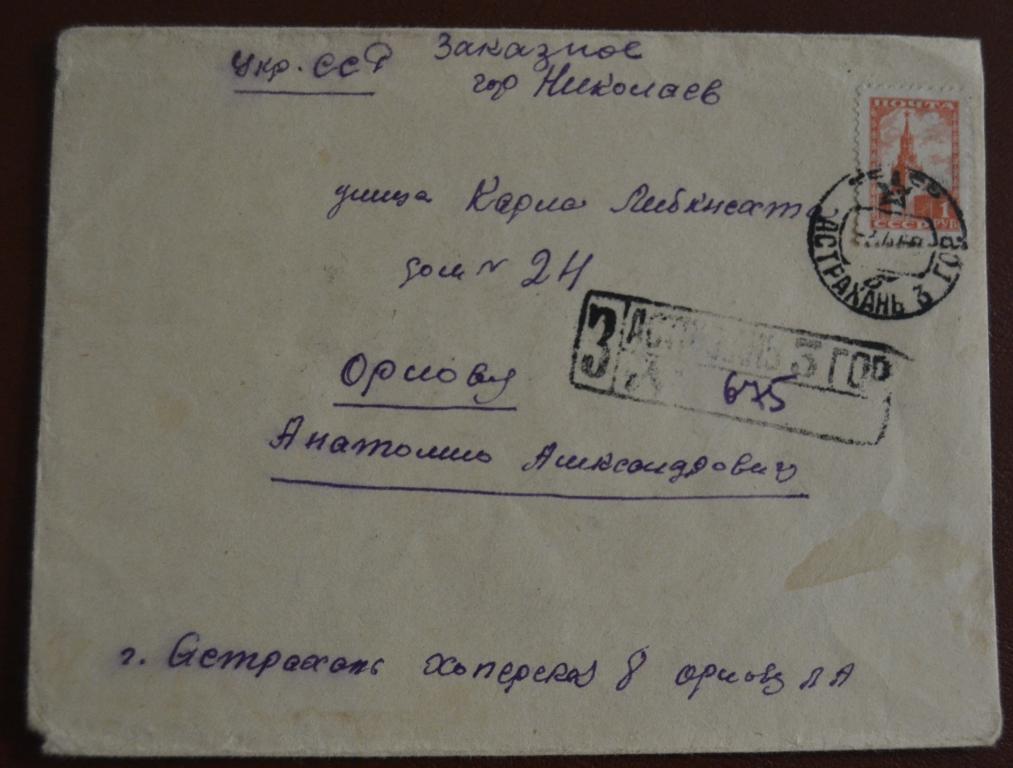 Укр. ССР Заказное
гор Николаев
ПОЧТА
1
РУБ
СССР
улица Карла Либкнехта
дом № 24
АСТРАХАНЬ 3 ГОР
З АСТРАХАНЬ 3 ГОР
675
Орлову
Анатолию Александровичу
г. Астрахань Хоперская 8 Орлову А А